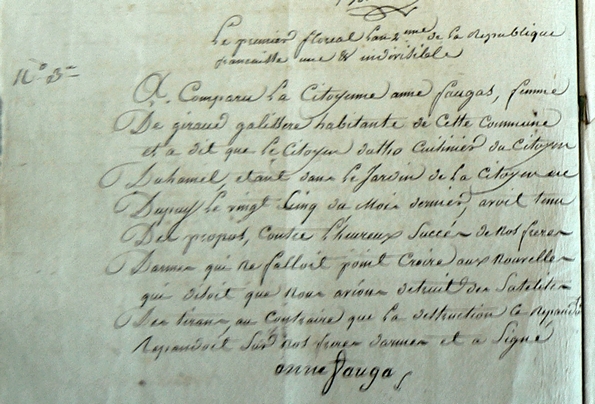 Le premier floreal Lan 2eme de la Republique
francaisse une & indivisible
No. 3.
A. Comparu La Citoyenne anne faugas, femme
De giraud galissere habitante de Cette Commune
et a dit que le Citoyen dutho Cuisinier du Citoyen
Duhamel, etait dans le Jardin de la Citoyenne
Dupuy le vingt Cinq du Mois dernier, avoit tenu
Des propos, Contre l'heureux Succés de nos freres
Darmes qui ne falloit point Croire aux Nouvelles
qui disoit que nous avions detruit des Satelites
Des tirans, au Contraire que la destruction Ce
Repandoit Sur nos freres darmes et a Signé
anne faugas